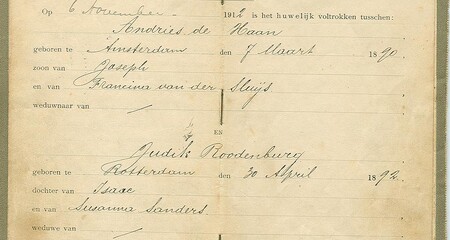 Op 6 November 1912 is het huwelijk voltrokken tusschen:
Andries de Haan
geboren te Amsterdam den 7 Maart 1890.
zoon van Joseph
en van Francina van der Sluijs.
weduwnaar van —
EN
Judik Roodenburg
geboren te Rotterdam den 30 April 1892.
dochter van Isaac
en van Susanna Sanders.
weduwe van —